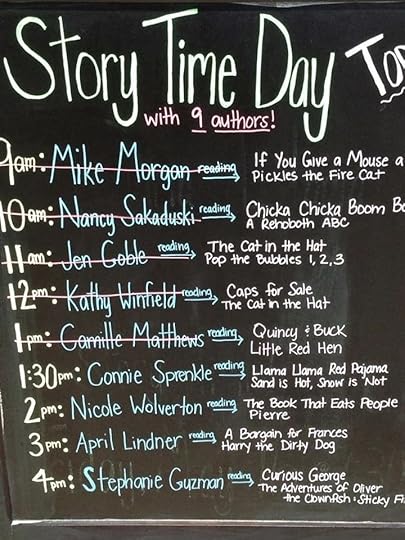 Story Time Day
with 9 authors!
9am: Mike Morgan reading If You Give a Mouse a
Pickles the Fire Cat
10am: Nancy Sakaduski reading Chicka Chicka Boom
A Rehoboth ABC
11am: Jen Goble reading The Cat in the Hat
Pop the Bubbles 1, 2, 3
12pm: Kathy Winfield reading Caps for Sale
The Cat in the Hat
1pm: Camille Matthews reading Quincy & Buck
Little Red Hen
1:30pm: Connie Sprenkle reading Llama Llama Red Pajama
Sand is Hot, Snow is Not
2pm: Nicole Wolverton reading The Book That Eats People
Pierre
3pm: April Lindner reading A Bargain for Frances
Harry the Dirty Dog
4pm: Stephanie Guzman reading Curious George
The Adventures of Oliver
the Clownfish: Sticky